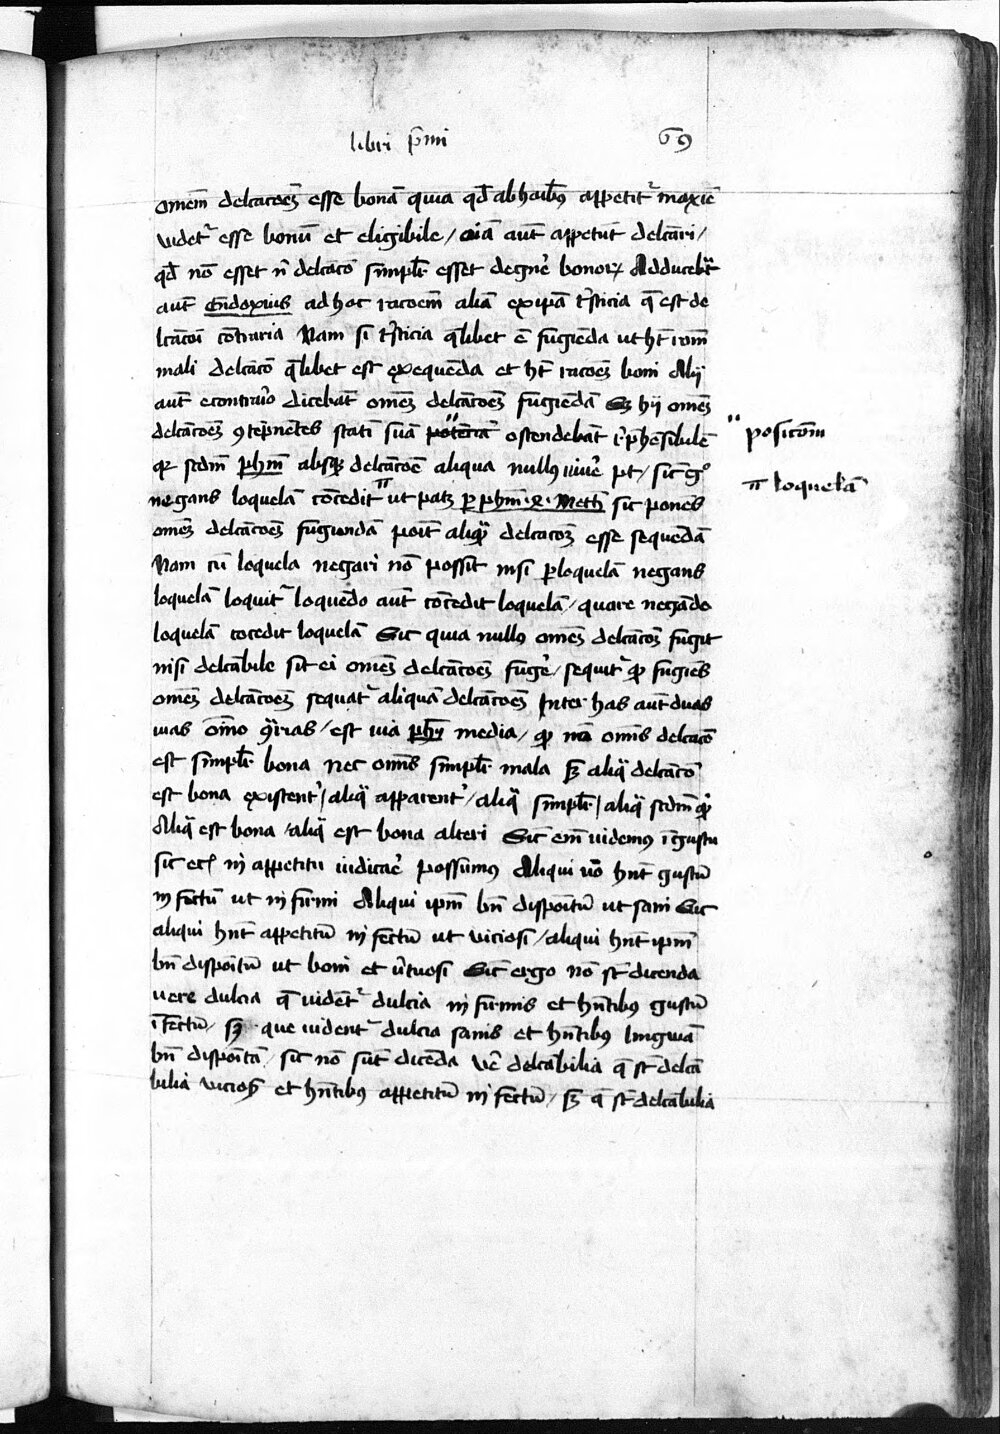 libri p̄mi 69
om̄em delcacōeȝ esse bonā quia qd̄ ab hoīb9 appetit᷑ maxīe
videt᷑ esse bonū et eligibile / oīa aūt appetūt delcāri /
qd̄ nō esset n̄ delcācō simpl̄r esset degn̄e bonoꝝ Adduceb̄t
aūt Eudoxius ad hoc racoēm aliā ex ip̄a tr̄sticia q̄ est de
lcācōi cōtraria Nam si tr̄sticia q̄libet ē fugiēda ut hȝ rōm̄
mali delcācō q̄libet est exequēda et hȝ racōeȝ boni Alij
aūt econtrar̄o dicebāt om̄eȝ delcācōeȝ fugiēdā Sȝ hij om̄eȝ
delcācōeȝ ꝯtep̄nētes stati suā potēciā ostendebāt ir̄phēsibilē
qꝛ scdm̄ ph̄m absqȝ delcācōē aliqua null9 viuē pt / sic eg°
negans loquelā cōcedit ut patȝ ꝑ ph̄m .x. Meth̄ sic ponēs
om̄eȝ delcācōeȝ fugiendā ponit aliquā delcacōeȝ esse sequēdā
Nam cū loquela negari nō possit nisi ꝑ loquelā negans
loquelā loquit᷑ loquēdo aūt cōcedit loquelā / quare negādo
loquelā cōcedit loquelā Sic quia null9 om̄eȝ delcācōeȝ fugit
nisi delcabile sit ei om̄eȝ delcācōeȝ fuḡe / sequit᷑ ꝙ fugiēs
om̄eȝ delcācōeȝ sequat᷑ aliquā delcācōeȝ Inter has aūt duas
vias om̄o ꝯ̄rias / est via ph̄i media / ꝙ nō omīs delcacō
est simpl̄r bona nec omīs simpl̄r mala sȝ aliq̄ delcācō
est bona existent᷑ / aliq̄ apparent᷑ / aliq̄ simpl̄r / aliq̄ scdm̄ qͥ
Aliq̄ est bona / aliq̄ est bona alteri Sic em̄ videm9 ī gustu
sic etꝫ in appetitu iudicar̄e possum9 Aliqui v̄o hn̄t gustū
infectū ut infirmi Aliqui ipm̄ bn̄ dispōitū ut sani Sic
aliqui hn̄t appetitū infectū ut viciosi / aliqui hn̄t ipm̄
bn̄ dispōitū ut boni et v̄tuosi Sic ergo nō st̄ dicenda
vere dulcia q̄ vident᷑ dulcia infirmis et hn̄tib9 gustū
īfectū / sȝ que vident᷑ dulcia sanis et hn̄tib9 lingwā
bn̄ dispōitā / sic nō sūt dicēda ve᷑ delcabilia q̄ st̄ delcā
bilia viciosꝭ et hn̄tib9 appetitū infectū / sȝ q̄ st̄ delcabilia
" posicōm
π loquelā